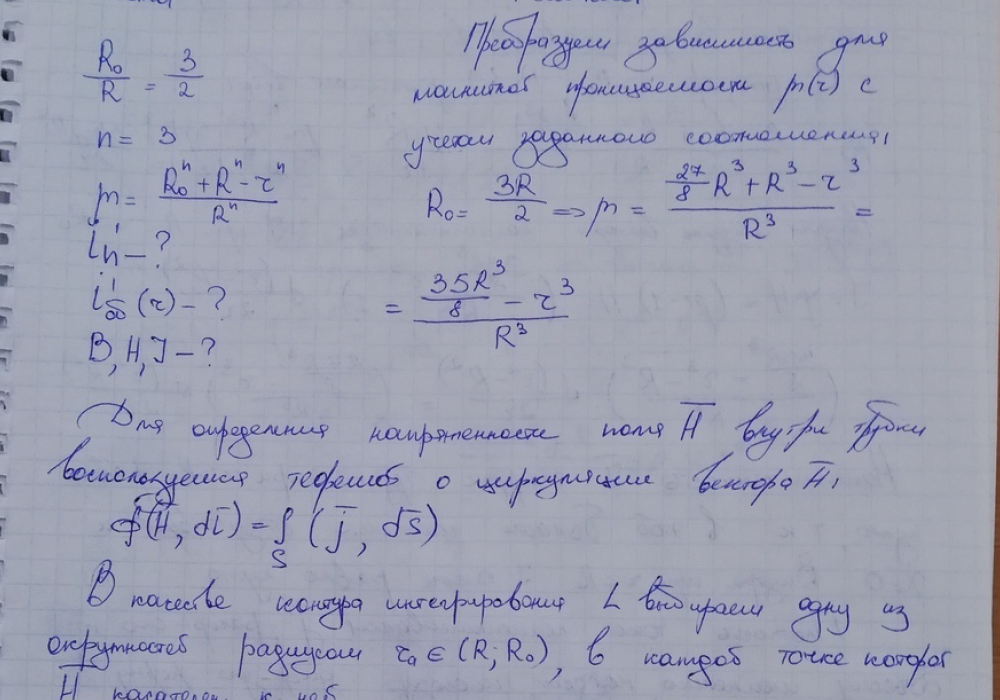 R₀/R = 3/2
n = 3
μ = (R₀ⁿ + Rⁿ - rⁿ)/Rⁿ
i'п - ?
i'об (r) - ?
B, H, J - ?
Преобразуем зависимость для
магнитной проницаемости μ(r) с
учетом заданного соотношения,
R₀ = 3R/2 => μ = (27/8 R³ + R³ - r³)/R³ =
= (35R³/8 - r³)/R³
Для определения напряженности поля H̅ внутри трубки
воспользуемся теоремой о циркуляции вектора H̅,
∮(H̅, dl̅) = ∫S (j̅, dS̅)
В качестве контура интегрирования L выбираем одну из
окружностей радиусом r₁ ∈ (R; R₀), в каждой точке которой
H̅ касателен к ней